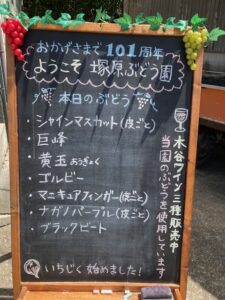 おかげさまで101周年
ようこそ 塚原ぶどう園
本日のぶどう
・シャインマスカット(皮ごと)
・巨峰
・黄玉 おうぎょく
・ゴルビー
・マニキュアフィンガー(皮ごと)
・ナガノパープル(皮ごと)
・ブラックビート
いちじく始めました!
木谷ワイン三種販売中
当園のぶどうを使用しています